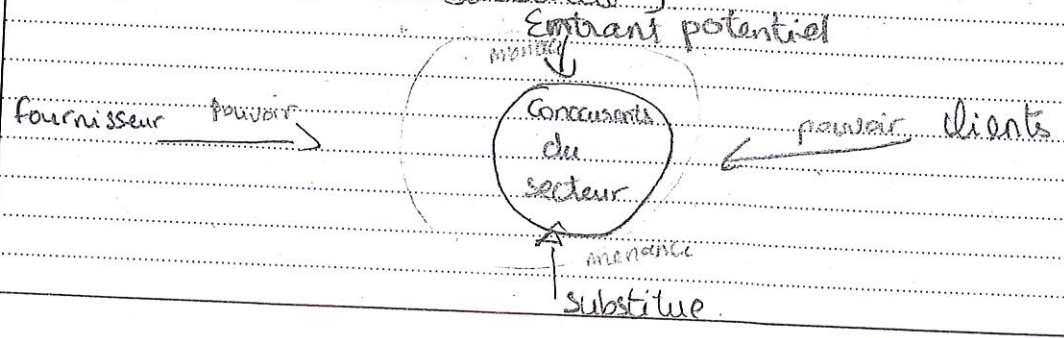 Entrant potentiel
menace
fournisseur pouvoir
Conccurents
du
secteur
pouvoir clients
menance
substitue.